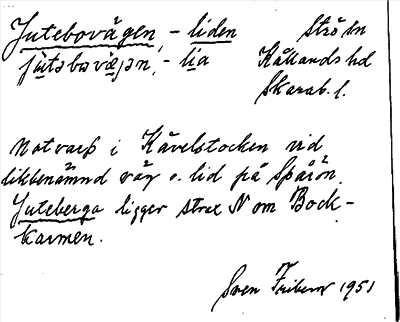 Jutebovägen, -liden Strö sn
jútabovæjən, -lia Kållands hd
Skarab. l.
Notvarp i Kävelstocken vid
likbenämnd väg o. lid på Spårön.
Juteberga ligger strax N om Bock-
karmen.
Sven Friberg 1951